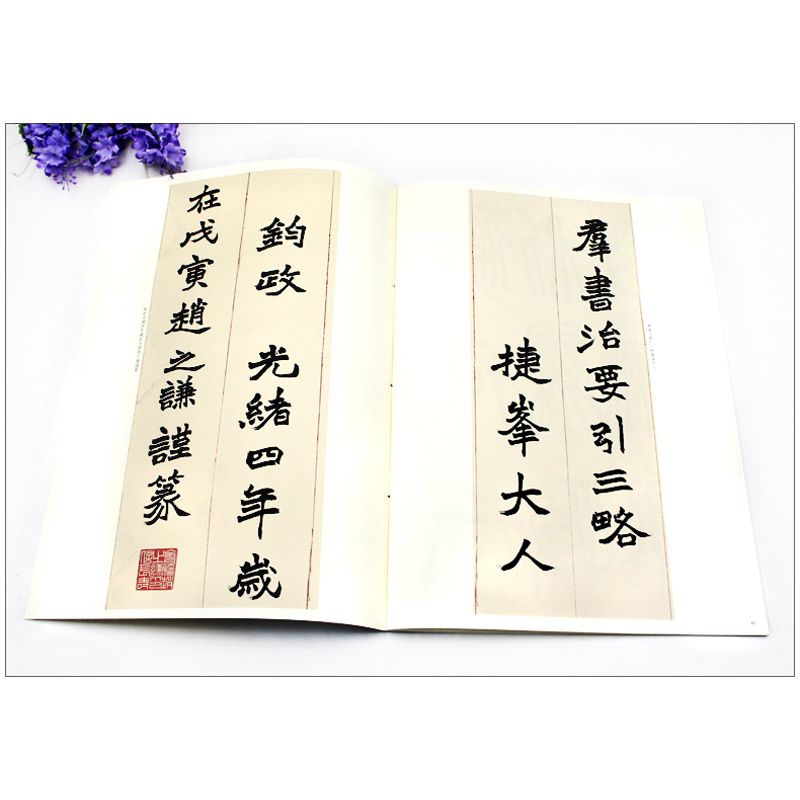 羣書治要引三略
捷峯大人
鈞政 光緒四年歲
在戊寅趙之謙謹篆